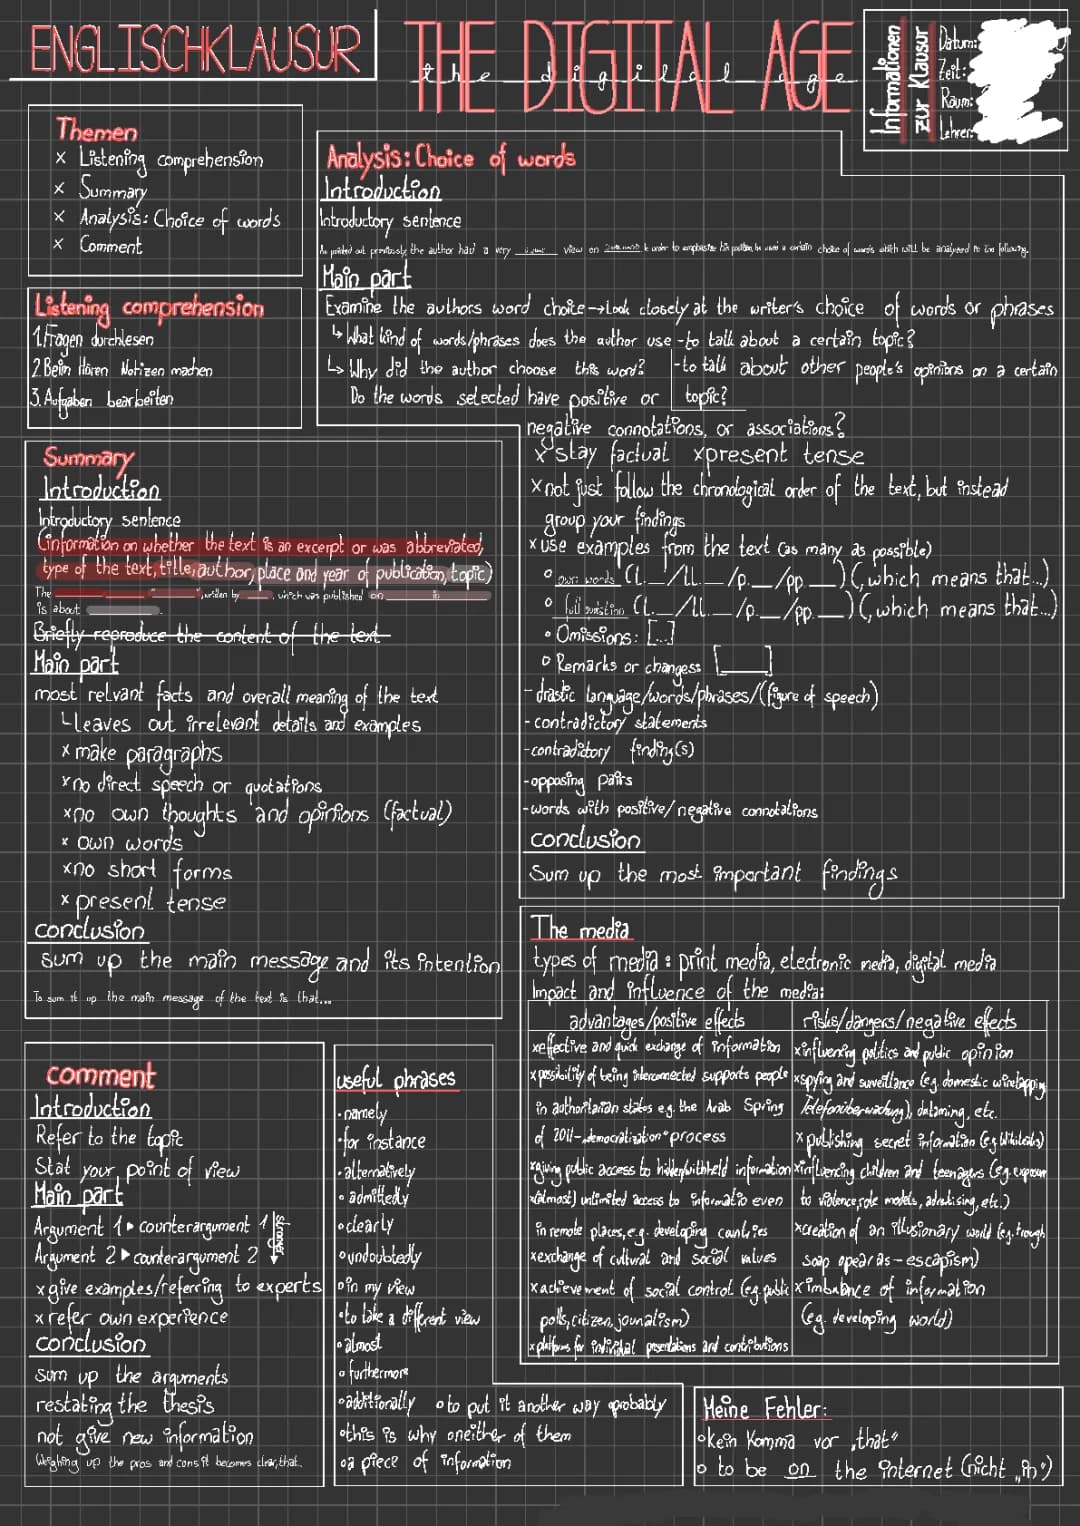 ENGLISCHKLAUSUR
THE DIGITAL AGE
the digital age
Informationen
zur Klausur
Datum:
Zeit:
Raum:
Lehrer:
Themen
x Listening comprehension
x Summary
x Analysis: Choice of words
x Comment
Listening comprehension
1. Fragen durchlesen
2. Beim Hören Notizen machen
3. Aufgaben bearbeiten
Summary
Introduction
Introductory sentence
(information on whether the text is an excerpt or was abbreviated,
type of the text, title, author, place and year of publication, topic)
The ____ "____", written by ____, which was published on ____ in ____
is about ____
Briefly reproduce the content of the text
Main part
most relvant facts and overall meaning of the text
↳ leaves out irrelevant details and examples
x make paragraphs
x no direct speech or quotations
x no own thoughts and opinions (factual)
x own words
x no short forms
x present tense
conclusion
sum up the main message and its intention
To sum it up the main message of the text is that...
Analysis: Choice of words
Introduction
Introductory sentence
As pointed out previously the author had a very ____ view on ____ In order to emphasize his position he used a certain choice of words which will be analysed in the following.
Main part
Examine the authors word choice → Look closely at the writer's choice of words or phrases
↳ What kind of words/phrases does the author use - to talk about a certain topic?
↳ Why did the author choose this word? - to talk about other people's opinions on a certain
Do the words selected have positive or topic?
negative connotations, or associations?
x stay factual x present tense
x not just follow the chronological order of the text, but instead
group your findings
x use examples from the text (as many as possible)
° own words (l.__/ll.__/p.__/pp.__) (, which means that...)
° full quotation (l.__/ll.__/p.__/pp.__) (, which means that...)
° Omissions: [...]
° Remarks or changess [____]
- drastic language/words/phrases/(figure of speech)
- contradictory statements
- contradictory finding(s)
- opposing pairs
- words with positive/negative connotations
conclusion
Sum up the most important findings
The media
types of media: print media, electronic media, digital media
Impact and influence of the media:
advantages/positive effects
x effective and quick exchange of information
x possibility of being interconnected supports people
in authoritarian states e.g. the Arab Spring
of 2011 - „democratization" process
x giving public access to hidden/withheld information
x (almost) unlimited access to informatio even
in remote places, e.g. developing countries
x exchange of cultural and social values
x achievement of social control (e.g. public
polls, citizen, jounalism)
x platforms for individual presentations and contributions
risks/dangers/negative effects
x influening politics and public opinion
x spying and surveillance (e.g. domestic wiretapping
Telefonüberwachung), dataming, etc.
x publishing secret information (e.g. Wikileaks)
x influencing children and teenagers (e.g. exposure
to violence, role models, advertising, etc.)
x creation of an illusionary world (e.g. trough
soap operas - escapism)
x imbalance of information
(e.g. developing world)
comment
Introduction
Refer to the topic
Stat your point of view
Main part
Argument 1 ▸ counterargument 1
Argument 2 ▸ counterargument 2
stronger
x give examples/referring to experts
x refer own experience
conclusion
sum up the arguments
restating the thesis
not give new information
Weighing up the pros and cons it becomes clear, that...
useful phrases
· namely
· for instance
· alternatively
° admittedly
° clearly
° undoubtedly
° in my view
° to take a different view
° almost
° furthermore
° additionally ° to put it another way ° probably
° this is why ° neither of them
° a piece of information
Meine Fehler:
° kein Komma vor „that"
° to be on the internet (nicht „in")